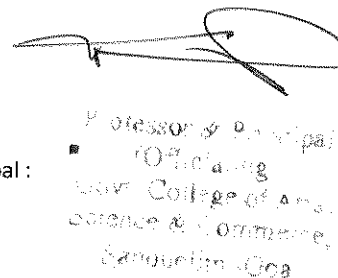 Professor & Principal
(Officiating
al :
Govt. College of Arts,
Science & Commerce,
Sanquelim-Goa